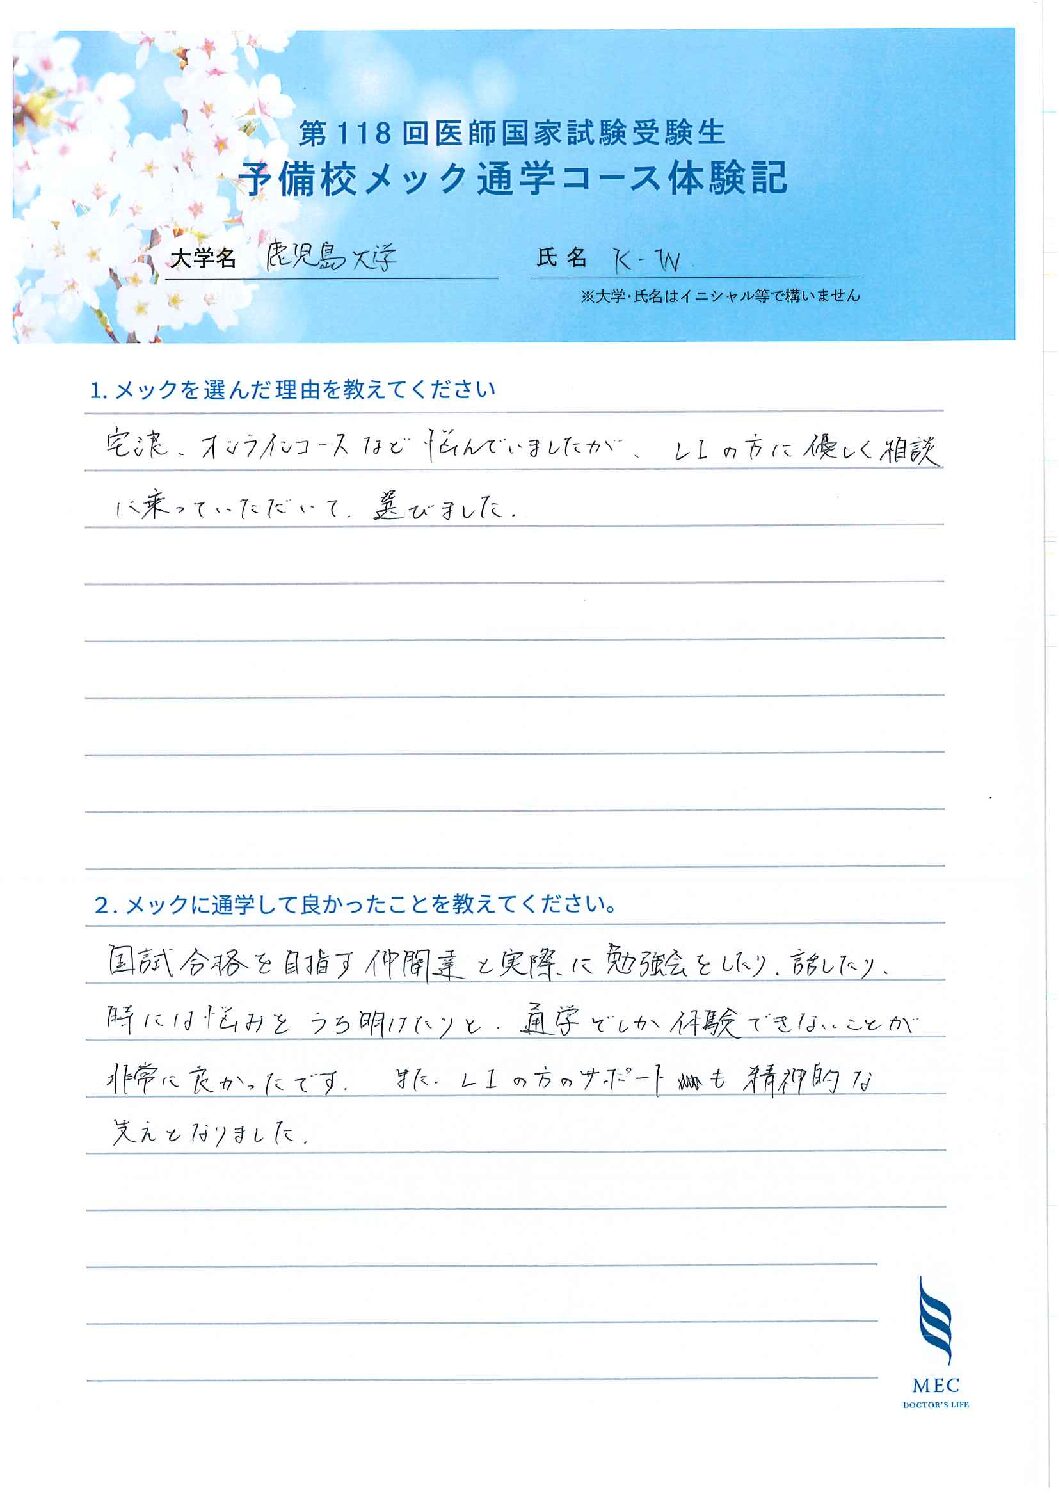 第118回医師国家試験受験生
予備校メック通学コース体験記
大学名 鹿児島大学 氏名 K-W
※大学・氏名はイニシャル等で構いません
1.メックを選んだ理由を教えてください
宅浪、オンラインコースなど悩んでいましたが、LIの方に優しく相談
に乗っていただいて、選びました.
2.メックに通学して良かったことを教えてください。
国試合格を目指す仲間達と実際に勉強会をしたり、話したり、
時には悩みをうち明けたりと、通学でしか体験できないことが
非常に良かったです. また、LIの方のサポートも精神的な
支えとなりました.
MEC
DOCTOR'S LIFE